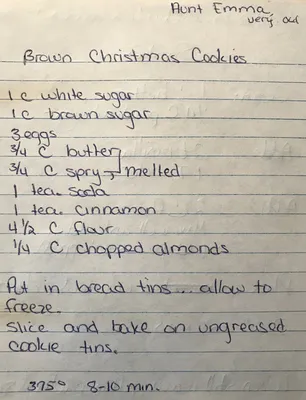 Aunt Emma
very old
Brown Christmas Cookies
1 c white sugar
1 c brown sugar
3 eggs
3/4 C butter
3/4 C spry melted
1 tea. soda
1 tea. cinnamon
4 1/2 C flour
1/4 C chopped almonds
Put in bread tins... allow to
freeze.
Slice and bake on ungreased
cookie tins.
375° 8-10 min.